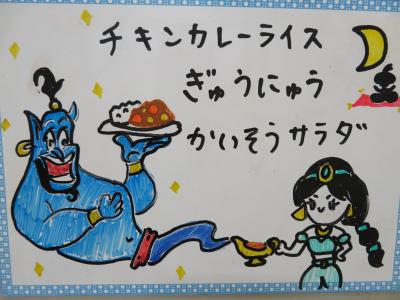 チキンカレーライス
ぎゅうにゅう
かいそうサラダ